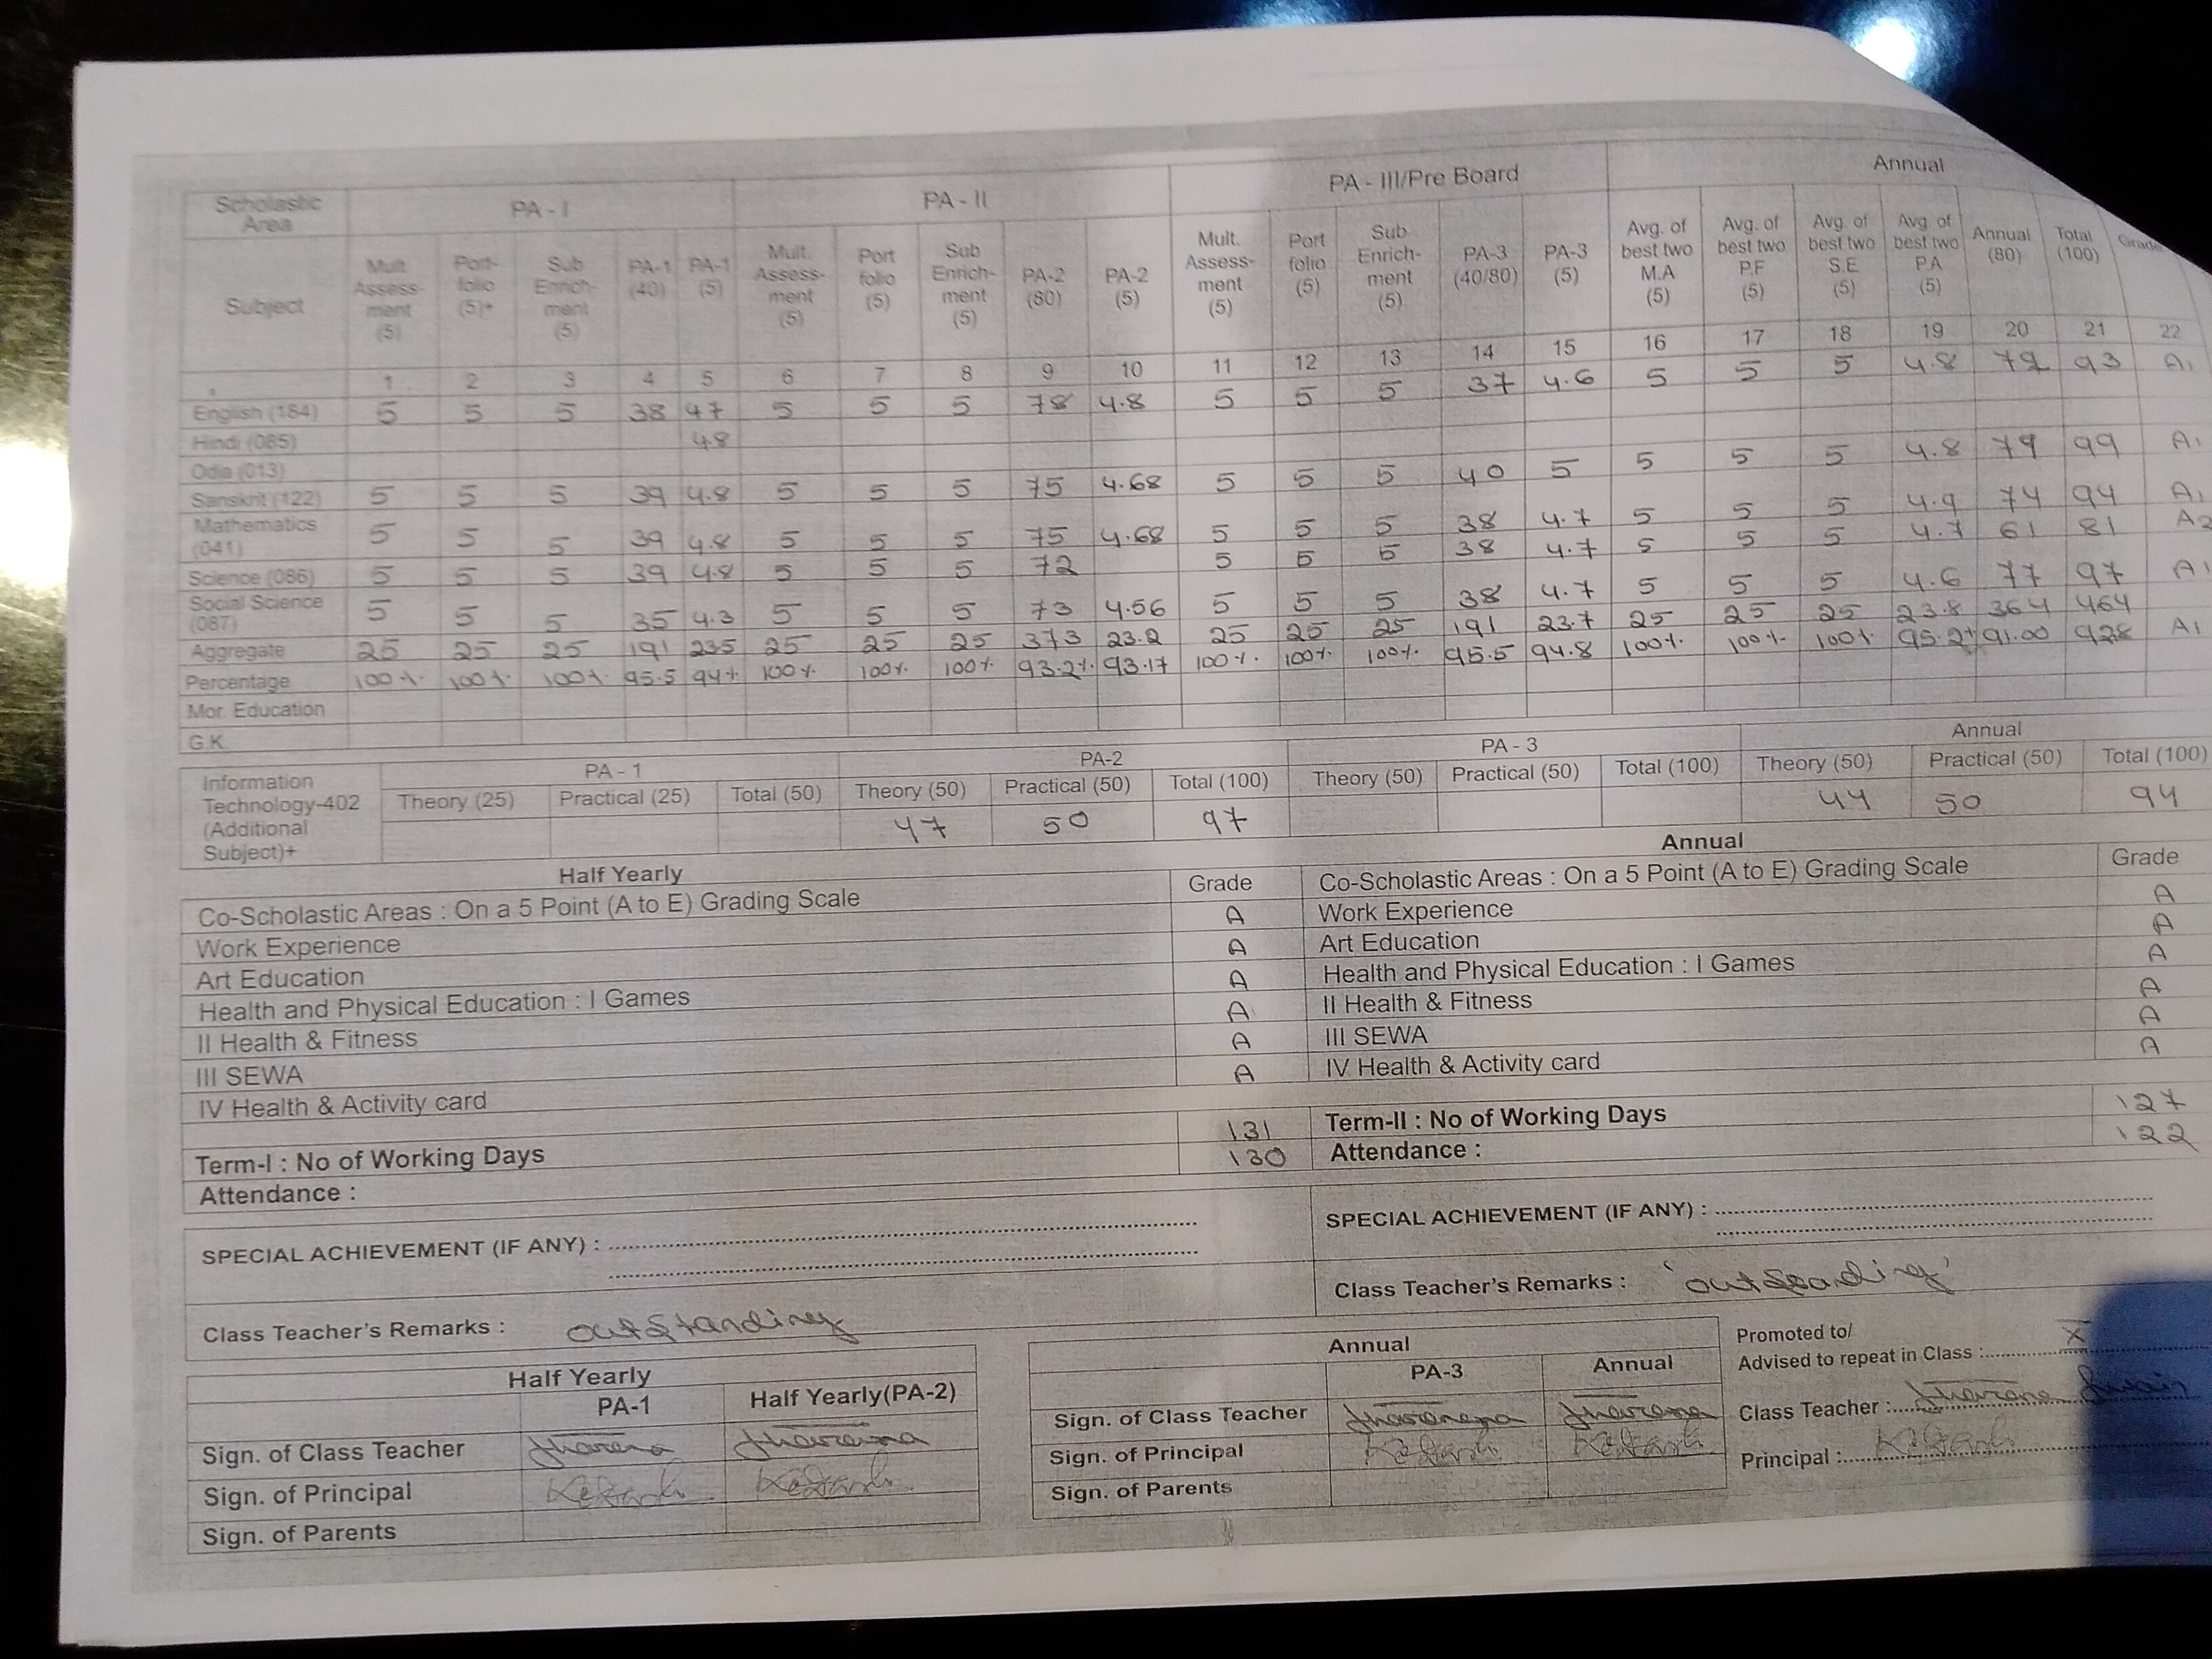 Scholastic Area PA - I PA - II PA - III/Pre Board Annual
Subject Mult. Assess-ment (5) Port-folio (5)+ Sub Enrich-ment (5) PA-1 (40) PA-1 (5) Mult. Assess-ment (5) Port folio (5) Sub Enrich-ment (5) PA-2 (80) PA-2 (5) Mult. Assess-ment (5) Port folio (5) Sub Enrich-ment (5) PA-3 (40/80) PA-3 (5) Avg. of best two M.A (5) Avg. of best two P.F (5) Avg. of best two S.E (5) Avg. of best two P.A (5) Annual (80) Total (100) Grade
1 2 3 4 5 6 7 8 9 10 11 12 13 14 15 16 17 18 19 20 21 22
English (184) 5 5 5 38 47 5 5 5 78 4.8 5 5 5 37 4.6 5 5 5 4.8 93 A1
Hindi (085) 4.8
Odia (013)
Sanskrit (122) 5 5 5 39 4.8 5 5 5 75 4.68 5 5 5 40 5 5 5 5 4.8 79 99 A1
Mathematics (041) 5 5 5 39 4.8 5 5 5 75 4.68 5 5 5 38 4.7 5 5 5 4.9 74 94 A1
Science (086) 5 5 5 39 4.8 5 5 5 72 5 5 5 38 4.7 5 5 5 4.7 61 81 A2
Social Science (087) 5 5 5 35 4.3 5 5 5 73 4.56 5 5 5 38 4.7 5 5 5 4.6 77 97 A1
Aggregate 25 25 25 191 23.5 25 25 25 373 23.2 25 25 25 191 23.7 25 25 25 23.8 364 464
Percentage 100% 100% 100% 95.5 94% 100% 100% 100% 93.2% 93.17 100% 100% 100% 95.5 94.8 100% 100% 100% 95.2% 91.00 92.8 A1
Mor. Education
G.K.
Information Technology-402 (Additional Subject)+ PA - 1 PA-2 PA - 3 Annual
Theory (25) Practical (25) Total (50) Theory (50) Practical (50) Total (100) Theory (50) Practical (50) Total (100) Theory (50) Practical (50) Total (100)
47 50 97 44 50 94
Half Yearly Annual
Co-Scholastic Areas : On a 5 Point (A to E) Grading Scale Grade
Work Experience A
Art Education A
Health and Physical Education : I Games A
II Health & Fitness A
III SEWA A
IV Health & Activity card A
Term-I : No of Working Days 131
Attendance : 130
Co-Scholastic Areas : On a 5 Point (A to E) Grading Scale Grade
Work Experience A
Art Education A
Health and Physical Education : I Games A
II Health & Fitness A
III SEWA A
IV Health & Activity card A
Term-II : No of Working Days 127
Attendance : 122
SPECIAL ACHIEVEMENT (IF ANY) :
Class Teacher's Remarks : outstanding
SPECIAL ACHIEVEMENT (IF ANY) :
Class Teacher's Remarks : 'outstanding'
Half Yearly
PA-1 Half Yearly(PA-2)
Sign. of Class Teacher
Sign. of Principal
Sign. of Parents
Annual
PA-3 Annual
Sign. of Class Teacher
Sign. of Principal
Sign. of Parents
Promoted to/
Advised to repeat in Class : X
Class Teacher :
Principal :